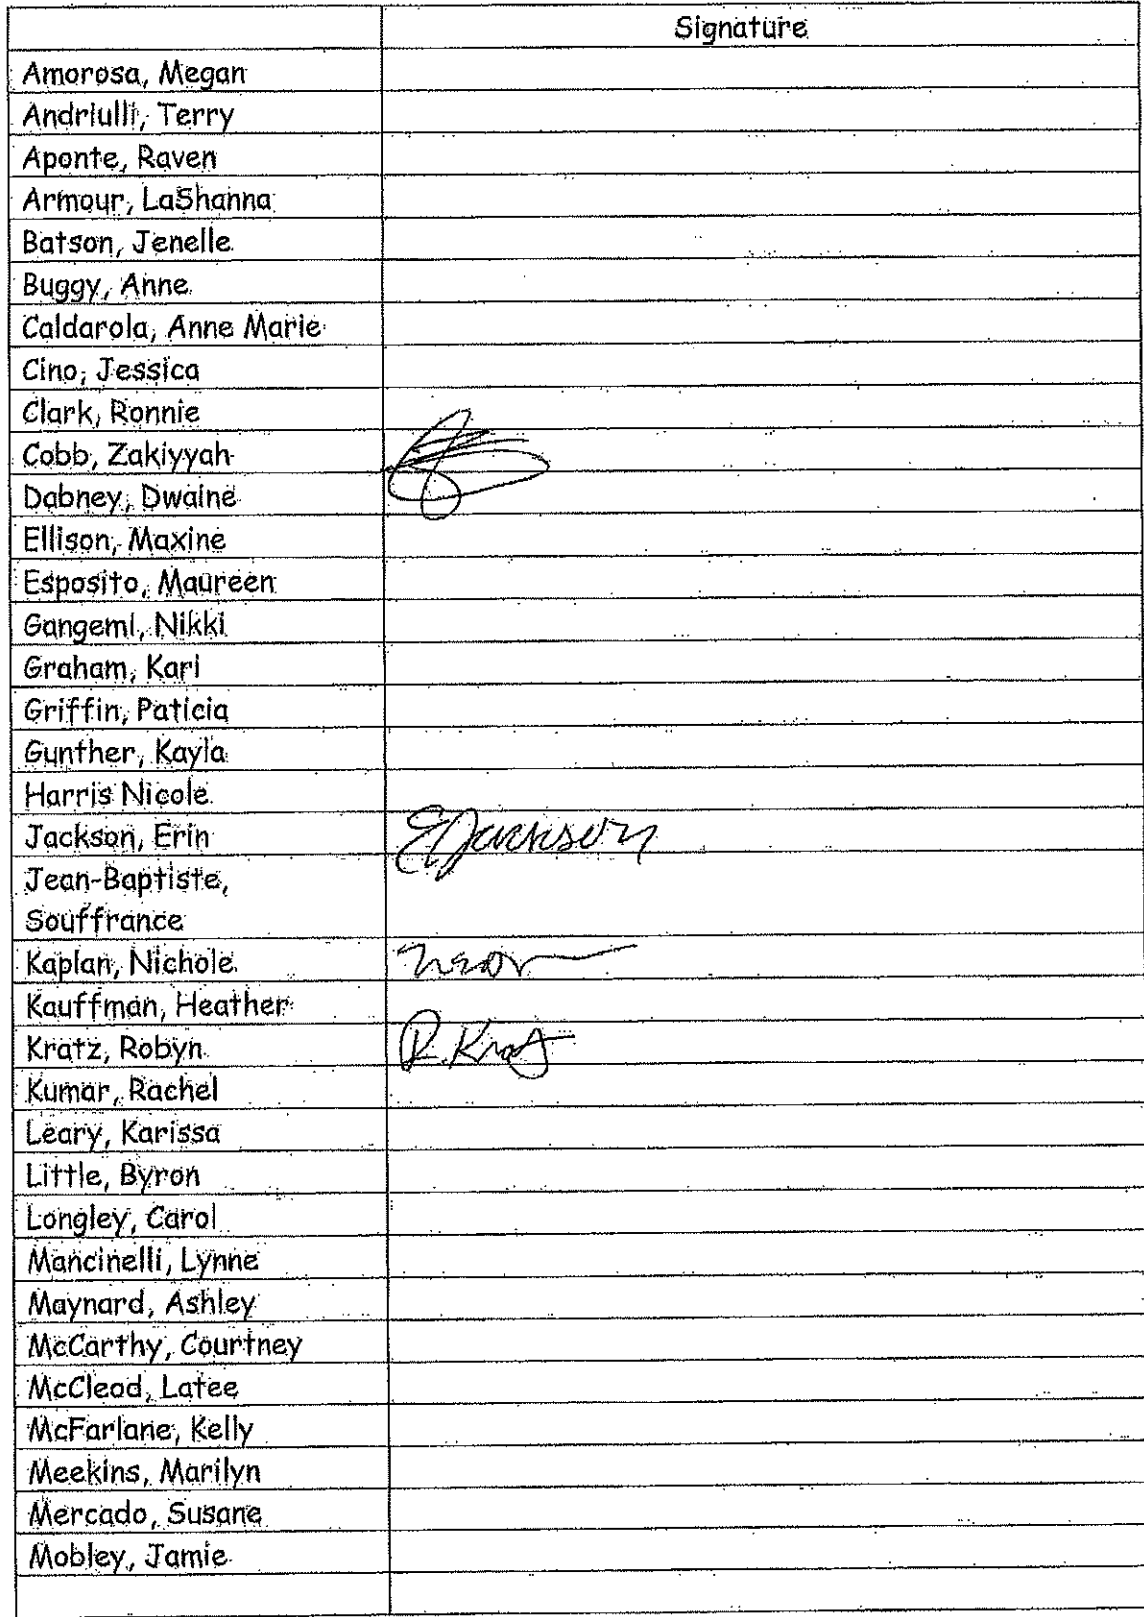 Signature
Amorosa, Megan
Andriulli, Terry
Aponte, Raven
Armour, LaShanna
Batson, Jenelle
Buggy, Anne
Caldarola, Anne Marie
Cino, Jessica
Clark, Ronnie
Cobb, Zakiyyah
Dabney, Dwaine
Ellison, Maxine
Esposito, Maureen
Gangemi, Nikki
Graham, Kari
Griffin, Paticia
Gunther, Kayla
Harris Nicole
Jackson, Erin EJackson
Jean-Baptiste,
Souffrance
Kaplan, Nichole
Kauffman, Heather
Kratz, Robyn R. Kratz
Kumar, Rachel
Leary, Karissa
Little, Byron
Longley, Carol
Mancinelli, Lynne
Maynard, Ashley
McCarthy, Courtney
McClead, Latee
McFarlane, Kelly
Meekins, Marilyn
Mercado, Susane
Mobley, Jamie